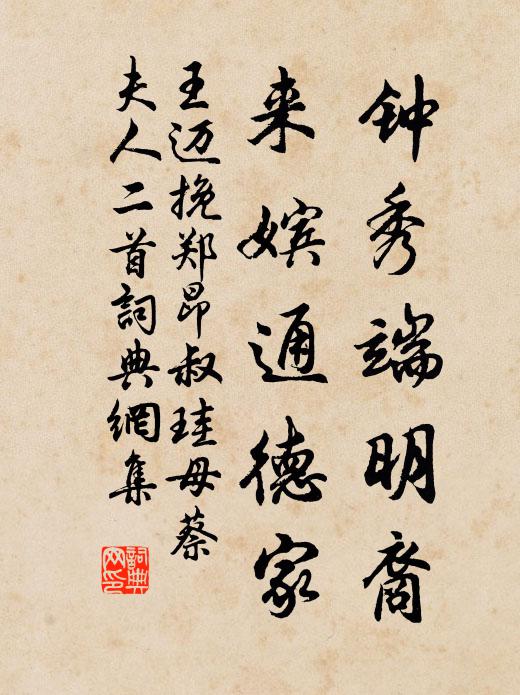 钟秀端明裔
来嫔通德家
王迈挽郑昂叔珪母蔡
夫人二首詞典網集
詞典网印